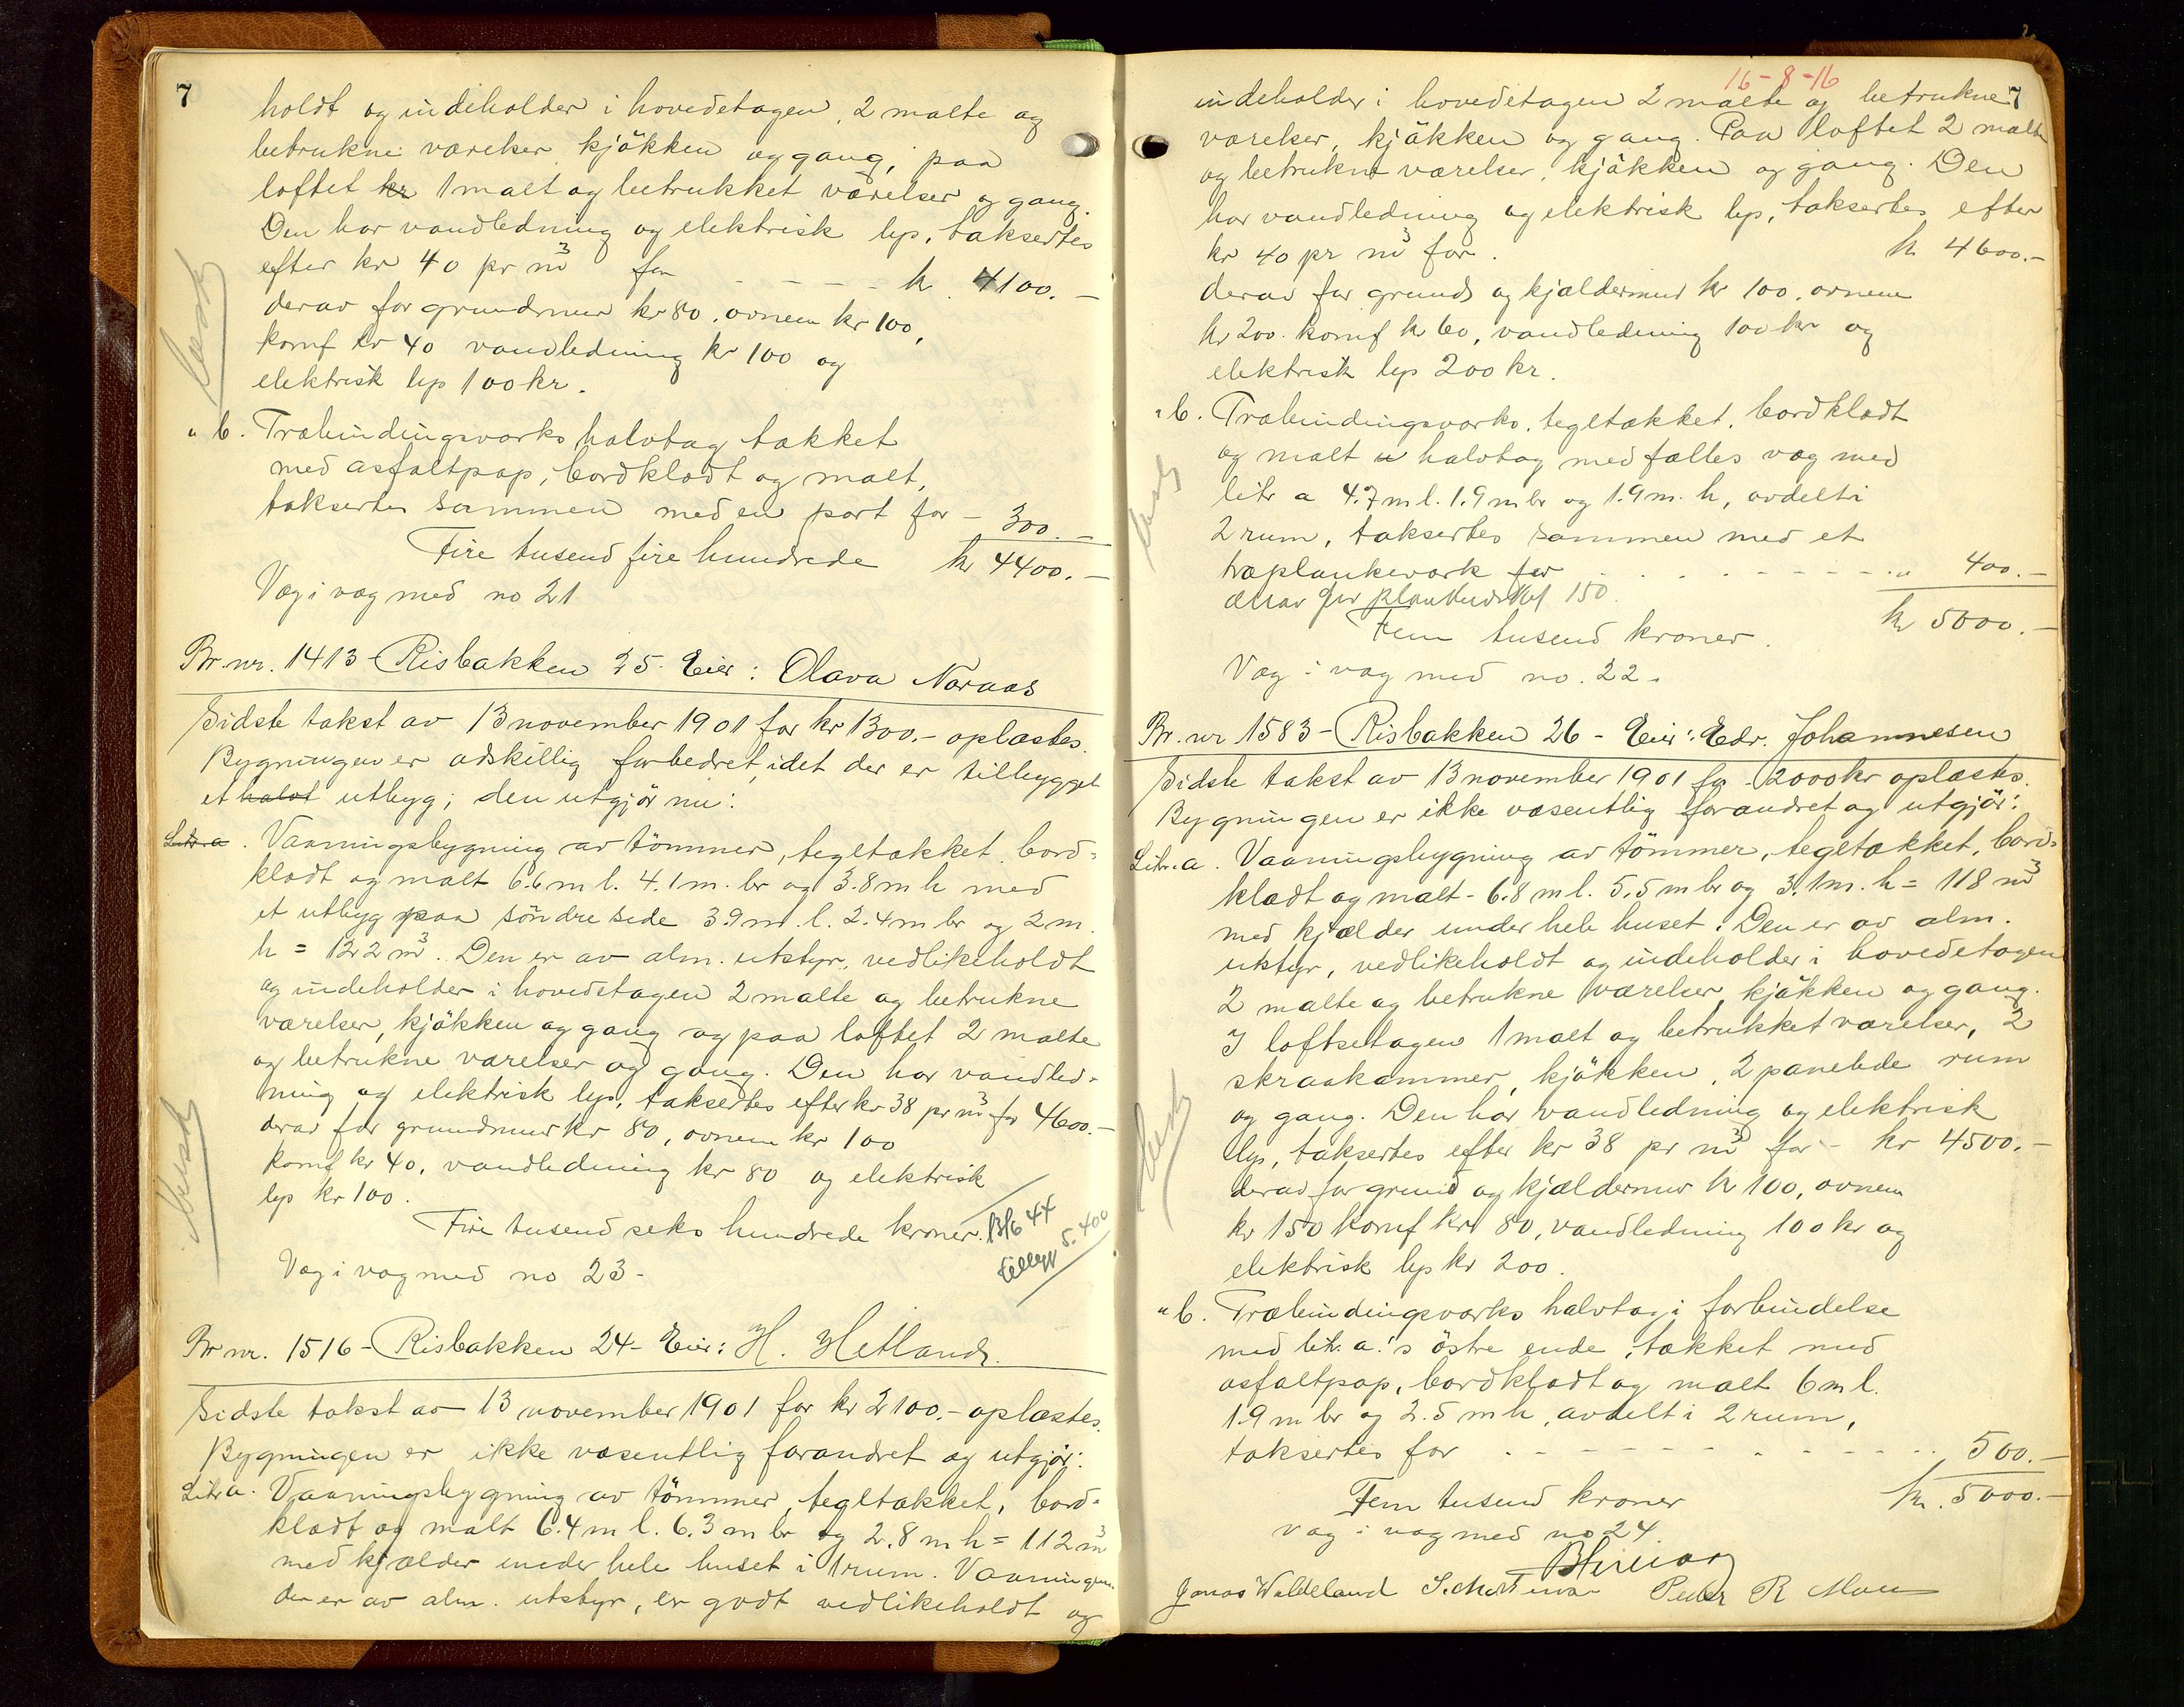 7
holdt og indeholder i hovedetagen, 2 malte og
betrukne værelser kjökken og gang, paa
loftet kr 1 malt og betrukket værelser og gang.
Den har vandledning og elektrisk lys, taksertes
efter kr 40 pr m³ for - - - - - kr 4100.-
derav for grundmur kr 80, ovnem kr 100,
komf kr 40 vandledning kr 100 og
elektrisk lys 100 kr.
" b. Træbindingsværks halvtag tækket
med asfaltpap, bordklædt og malt,
taksertes sammen med en port for - 300.-
Fire tusend fire hundrede kr 4400.-
Væg i væg med no 21
Br. nr. 1413 - Risbakken 25. Eier: Olava Noraas
Sidste takst av 13 november 1901 for kr 1300.- oplæstes.
Bygningen er adskillig forbedret, idet der er tilbygget
et halvt utbyg; den utgjör nu:
Litr. a. Vaaningsbygning av tömmer, tegltækket, bord-
klædt og malt 6.6 m l. 4.1 m. br og 3.8 m h med
et utbyg paa söndre side 3.9 m. l. 2.4 m br og 2 m.
h = 122 m³. Den er av alm. utstyr, vedlikeholdt
og indeholder i hovedetagen 2 malte og betrukne
værelser, kjökken og gang og paa loftet 2 malte
og betrukne værelser og gang. Den har vandled-
ning og elektrisk lys, taksertes efter kr 38 pr m³ for 4600.-
derav for grundmur kr 80, ovnem kr 100
komf kr 40, vandledning kr 80 og elektrisk
lys kr 100.
Fire tusend seks hundrede kroner. 13/6 44
tillegg 5.400
Væg i væg med no 23-
Br nr. 1516 - Risbakken 24- Eier: H. Hetland.
Sidste takst av 13 november 1901 for kr 2100.- oplæstes.
Bygningen er ikke væsentlig forandret og utgjör:
Litr a. Vaaningsbygning av tömmer, tegltækket, bord-
klædt og malt 6.4 m l. 6.3 m br og 2.8 m h = 112 m³
med kjælder under hele huset i 1 rum. Vaaningen
den er av alm. utstyr, er godt vedlikeholdt og
16-8-16
7
indeholder i hovedetagen 2 malte og betrukne
værelser, kjökken og gang. Paa loftet 2 malte
og betrukne værelser, kjökken og gang. Den
har vandledning og elektrisk lys, taksertes efter
kr 40 pr m³ for. kr 4600.-
derav for grund og kjældermur kr 100, ovnem
kr 200. komf kr 60, vandledning 100 kr og
elektrisk lys 200 kr.
" b. Træbindingsværks, tegltækket, bordklædt
og malt halvtag med fælles væg med
litr a 4.7 m l. 1.9 m br og 1.9 m. h, avdelt i
2 rum, taksertes sammen med et
træplankeværk for - - - - - " 400.-
derav for plankeverket 150.
Fem tusend kroner. kr 5000.-
Væg i væg med no. 22.
Br. nr 1583 - Risbakken 26 - Eier: Edr. Johannesen
Sidste takst av 13 november 1901 for 2000 kr oplæstes.
Bygningen er ikke væsentlig forandret og utgjör:
Litr. a. Vaaningsbygning av tömmer, tegltækket, bord-
klædt og malt - 6.8 m l. 5.5 m br og 3.1 m. h = 118 m³
med kjælder under hele huset. Den er av alm.
utstyr, vedlikeholdt og indeholder i hovedetagen
2 malte og betrukne værelser, kjökken og gang.
I loftsetagen 1 malt og betrukket værelser, 2
skraakammer, kjökken, 2 panelede rum
og gang. Den har vandledning og elektrisk
lys, taksertes efter kr 38 pr m³ for - kr 4500.-
derav for grund og kjældermur kr 100, ovnem
kr 150 komf kr 80, vandledning 100 kr og
elektrisk lys kr 200.
" b. Træbindingsværks halvtag i forbindelse
med litr. a.'s östre ende, tækket med
asfaltpap, bordklædt og malt 6 m l.
1.9 m br og 2.5 m h, avdelt i 2 rum,
taksertes for - - - - - 500.-
Fem tusend kroner kr. 5000.-
Væg i væg med no 24.
Jonas Waldeland Peder R Moen